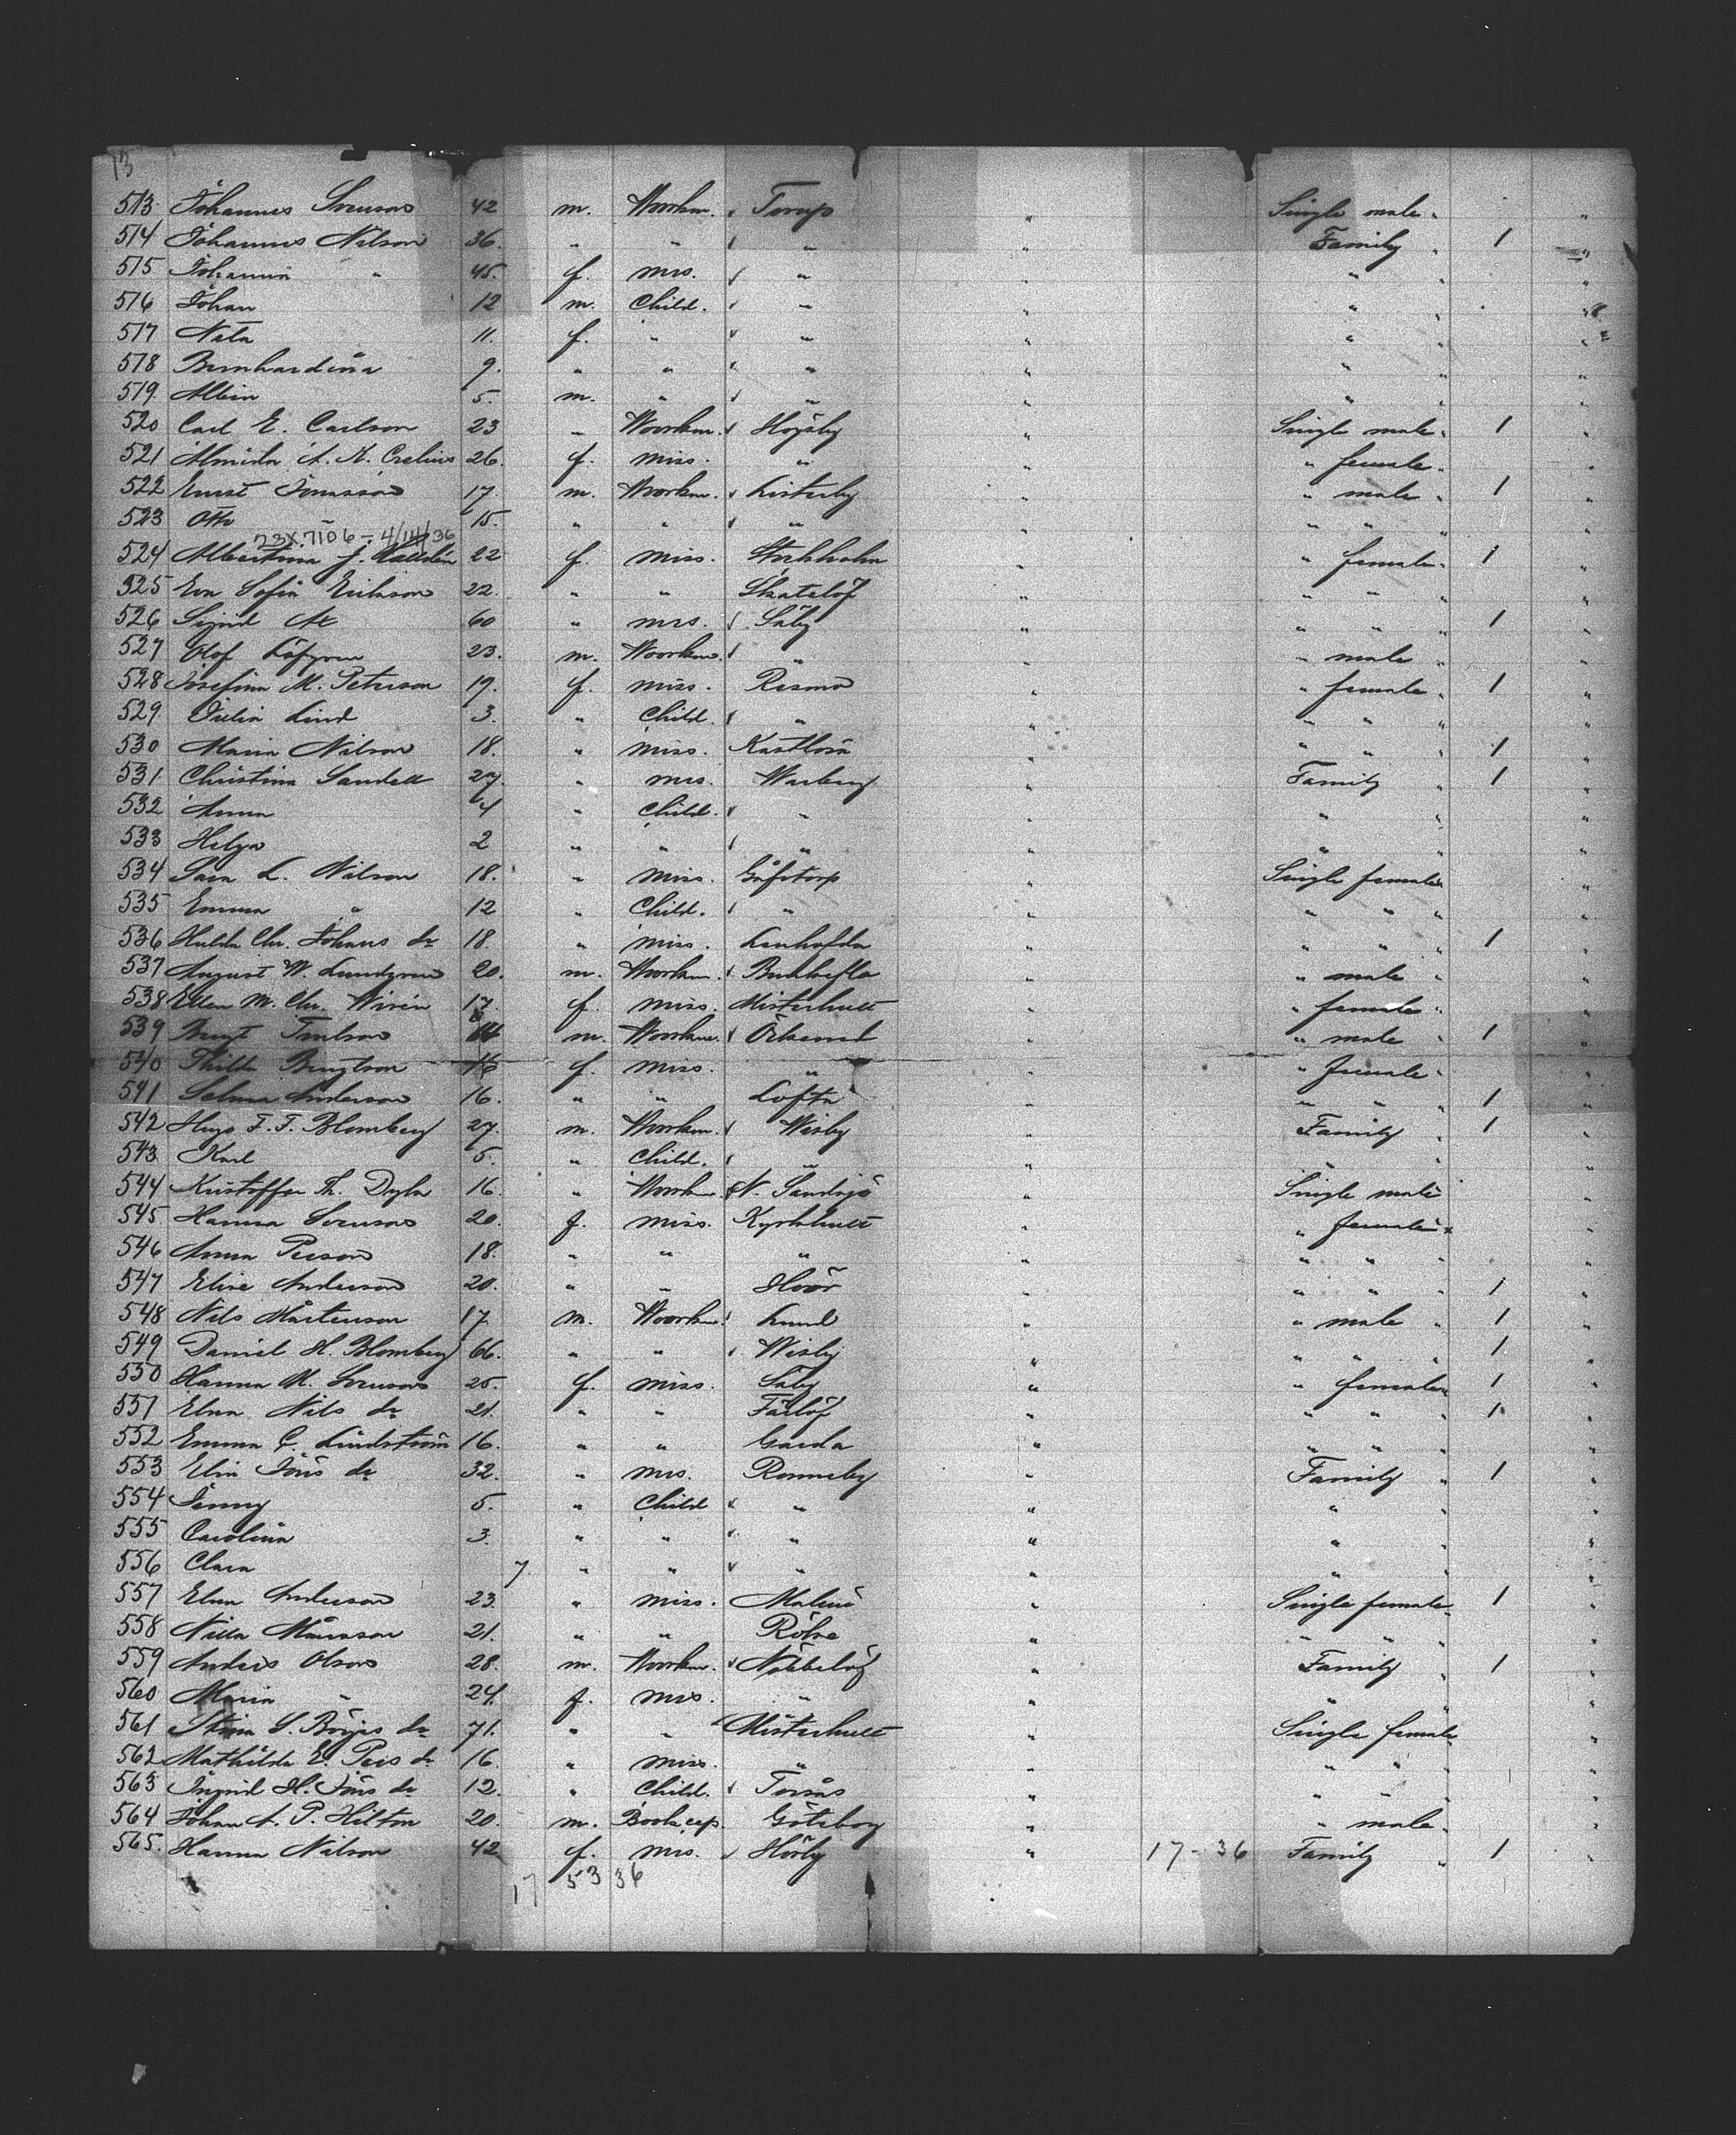 13
513 Johannes Svenson 42 m. Workm. Torup " Single male "
514 Johannes Nilson 36. " " " " Family " 1 "
515 Johanna " 45. f. mrs. " " " "
516 Johan 12 m. Child. " " " "
517 11. f. " " " " "
518 Bernhardina 9. " " " " " "
519. Albin 5. m. " " " " "
520 Carl E. Carlson 23 " Workm. Högsby " Single male " 1 "
521 Almida A. K. Crelius 26. f. miss. " " " female "
522 Ernst Jonasson 17. m. Workm. Listerby " " male " 1 "
523 Otto " 15. " " " " " " "
23X7106 - 4/14/36
524 Albertina J. 22 f. miss. Stockholm " " female " 1 "
525 Eva Sofia Erikson 22. " " Skatelöf " " " "
526 Sigrid 60 " mrs. Säby " " " " 1 "
527 Olof Löfgren 23. m. Workm. " " " male " "
528 Josefina M. Peterson 19. f. miss. Resmo " " female " 1 "
529. Julia Lind 3. " Child. " " " " " "
530 Maria Nilson 18. " miss. Kastlösa " " " " 1 "
531 Christina Sandell 27. " mrs. Warberg " Family " 1 "
532 Anna 4 " Child. " " " " "
533 Helga 2 " " " " " " "
534 Sara L. Nilson 18. " miss. " Single female "
535 Emma " 12 " Child. " " " " " "
536 Hulda Chr. Johans dr 18. " miss. Lenhofda " " " " 1 "
537 August W. Lundgren 20. m. Workm. " " male " "
538 Ellen M. Chr. Wirén 17. f. miss. Misterhult " " female " "
539 Bengt m. Workm. Örkened " " male " 1 "
540 Thilda Bengtson 16 f. miss. " " " female " "
541 Selma Anderson 16. " " Lofta " " " " 1 "
542 Hugo F. F. Blomberg 27. m. Workm. Wisby " Family " 1 "
543 Karl 5. " Child. " " " " "
544 Kristoffer Th. 16. " Workm. N. Sandsjö " Single male "
545 Hanna Svenson 20. f. miss. Kyrkhult " " female "
546 Anna Person 18. " " " " " " " "
547 Elise Anderson 20. " " Höör " " " " 1 "
548 Nils Mårtenson 17. m. Workm. Lund " " male " 1 "
549 Daniel H. Blomberg 66. " " Wisby " " " " 1 "
550 Hanna M. Svenson 25. f. miss. Säby " " female " 1 "
551 Elna Nils dr 21. " " Färlöf " " " " 1 "
552 Emma C. Lindström 16. " " Garda " " " " "
553 Elin Jöns dr 32. " mrs. Ronneby " Family " 1 "
554 Jenny 5. " Child " " " "
555 Carolina 3. " " " " " "
556 Clara 7. " " " " " " "
557 Elna Anderson 23. " miss. Malmö " Single female " 1 "
558 Nilla Månsson 21. " " " " " "
559 Anders Olson 28. m. Workm. Nöbbelöf " Family " 1 "
560 Maria " 24. f. mrs. " " " " "
561 Stina S. Börjes dr 71. " " Misterhult " Single female "
562 Mathilda E. Pers dr 16. " miss. " " " " "
563 Ingrid H. Jöns dr 12. " Child. Torsås " " " "
564 Johan A. P. Hilton 20. m. Bookeep. Göteborg " " male "
565. Hanna Nilson 42 f. mrs. Hörby " 17-36 Family " 1 "
17 53 36